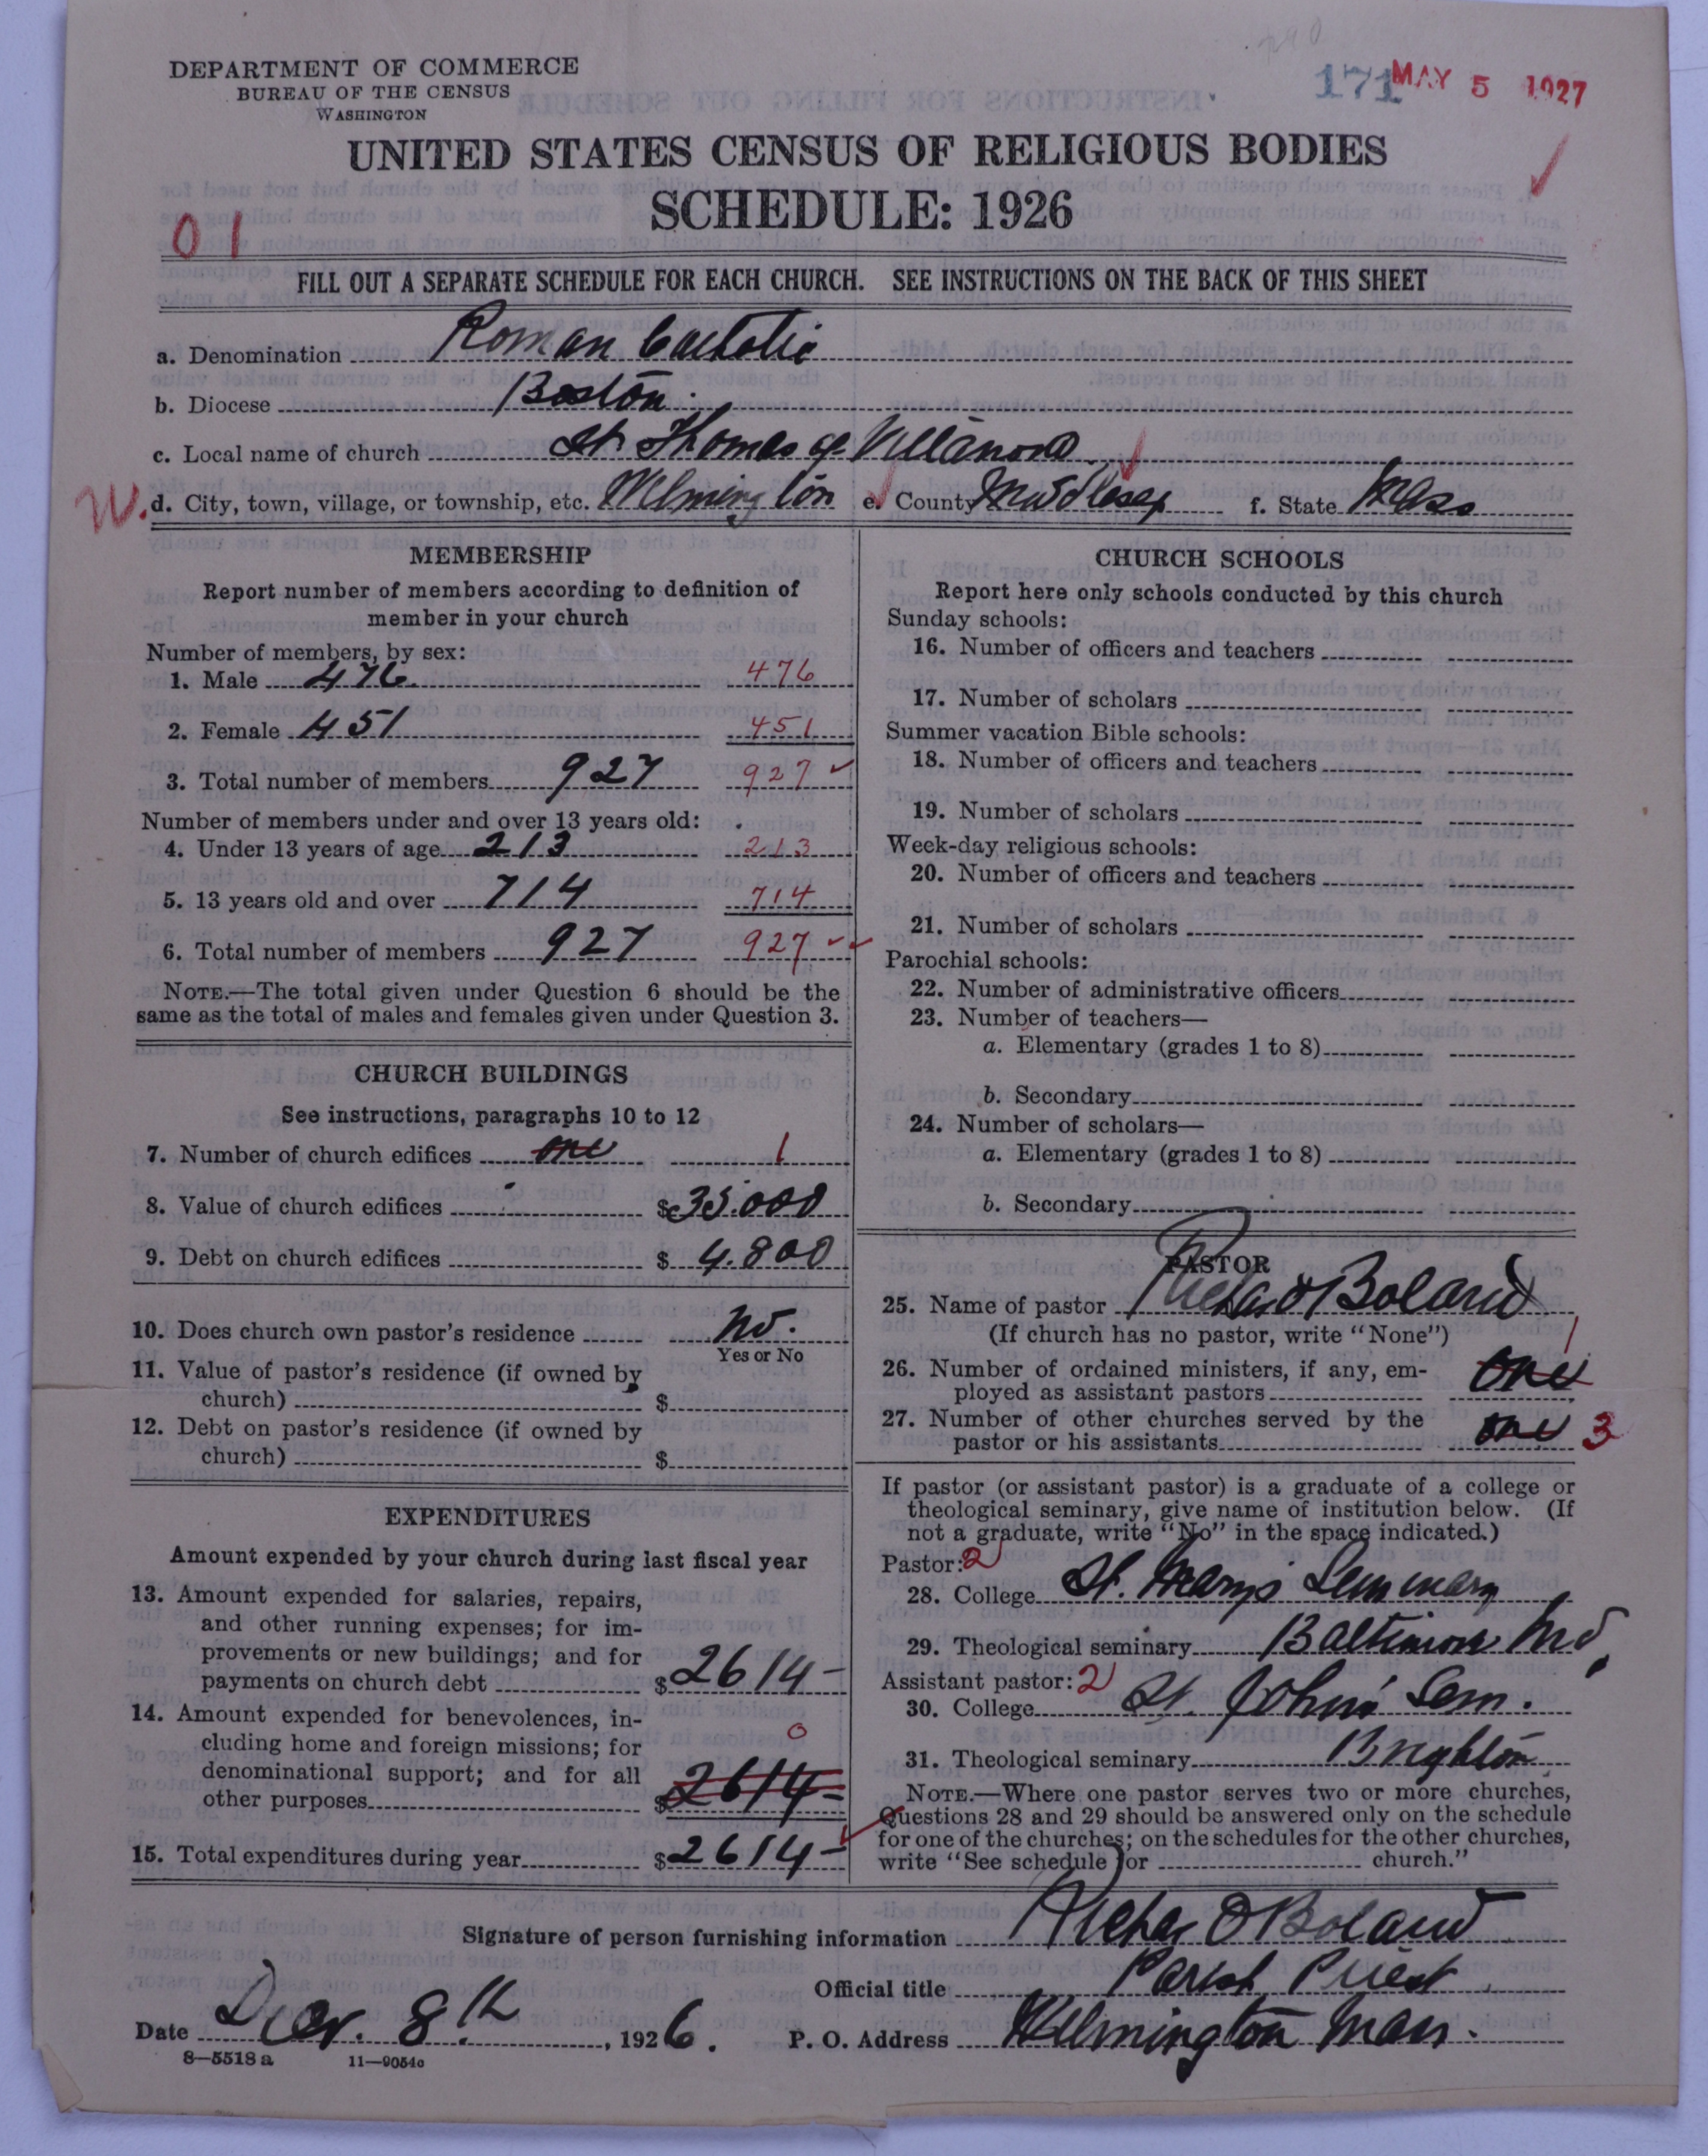 DEPARTMENT OF COMMERCE
BUREAU OF THE CENSUS
WASHINGTON
171 MAY 5 1927
UNITED STATES CENSUS OF RELIGIOUS BODIES
SCHEDULE: 1926
01
FILL OUT A SEPARATE SCHEDULE FOR EACH CHURCH. SEE INSTRUCTIONS ON THE BACK OF THIS SHEET
a. Denomination Roman Catholic
b. Diocese Boston.
c. Local name of church St. Thomas of Villanova
W. d. City, town, village, or township, etc. Wilmington e. County Middlesex f. State Mass
MEMBERSHIP
Report number of members according to definition of
member in your church
Number of members, by sex:
1. Male 476. 476
2. Female 451 451
3. Total number of members 927 927 ✓
Number of members under and over 13 years old:
4. Under 13 years of age 213 213
5. 13 years old and over 714 714
6. Total number of members 927 927 ✓ ✓
NOTE.—The total given under Question 6 should be the
same as the total of males and females given under Question 3.
CHURCH BUILDINGS
See instructions, paragraphs 10 to 12
7. Number of church edifices one 1
8. Value of church edifices $35.000
9. Debt on church edifices $ 4.800
10. Does church own pastor's residence No.
Yes or No
11. Value of pastor's residence (if owned by
church) $
12. Debt on pastor's residence (if owned by
church) $
EXPENDITURES
Amount expended by your church during last fiscal year
13. Amount expended for salaries, repairs,
and other running expenses; for im-
provements or new buildings; and for
payments on church debt $2614–
14. Amount expended for benevolences, in-
cluding home and foreign missions; for 0
denominational support; and for all
other purposes $2614–
15. Total expenditures during year $2614– ✓
CHURCH SCHOOLS
Report here only schools conducted by this church
Sunday schools:
16. Number of officers and teachers
17. Number of scholars
Summer vacation Bible schools:
18. Number of officers and teachers
19. Number of scholars
Week-day religious schools:
20. Number of officers and teachers
21. Number of scholars
Parochial schools:
22. Number of administrative officers
23. Number of teachers—
a. Elementary (grades 1 to 8)
b. Secondary
24. Number of scholars—
a. Elementary (grades 1 to 8)
b. Secondary
PASTOR
25. Name of pastor Richard Boland
(If church has no pastor, write "None") 1
26. Number of ordained ministers, if any, em-
ployed as assistant pastors one
27. Number of other churches served by the
pastor or his assistants one 3
If pastor (or assistant pastor) is a graduate of a college or
theological seminary, give name of institution below. (If
not a graduate, write "No" in the space indicated.)
Pastor: 2
28. College St. Marys Seminary
29. Theological seminary Baltimore Md.
Assistant pastor: 2
30. College St. John's Sem.
31. Theological seminary Brighton
NOTE.—Where one pastor serves two or more churches,
Questions 28 and 29 should be answered only on the schedule
for one of the churches; on the schedules for the other churches,
write "See schedule for church."
Signature of person furnishing information Richard Boland
Official title Parish Priest
Date Dec. 8th, 1926. P. O. Address Wilmington Mass.
8—5518 a 11—9054c